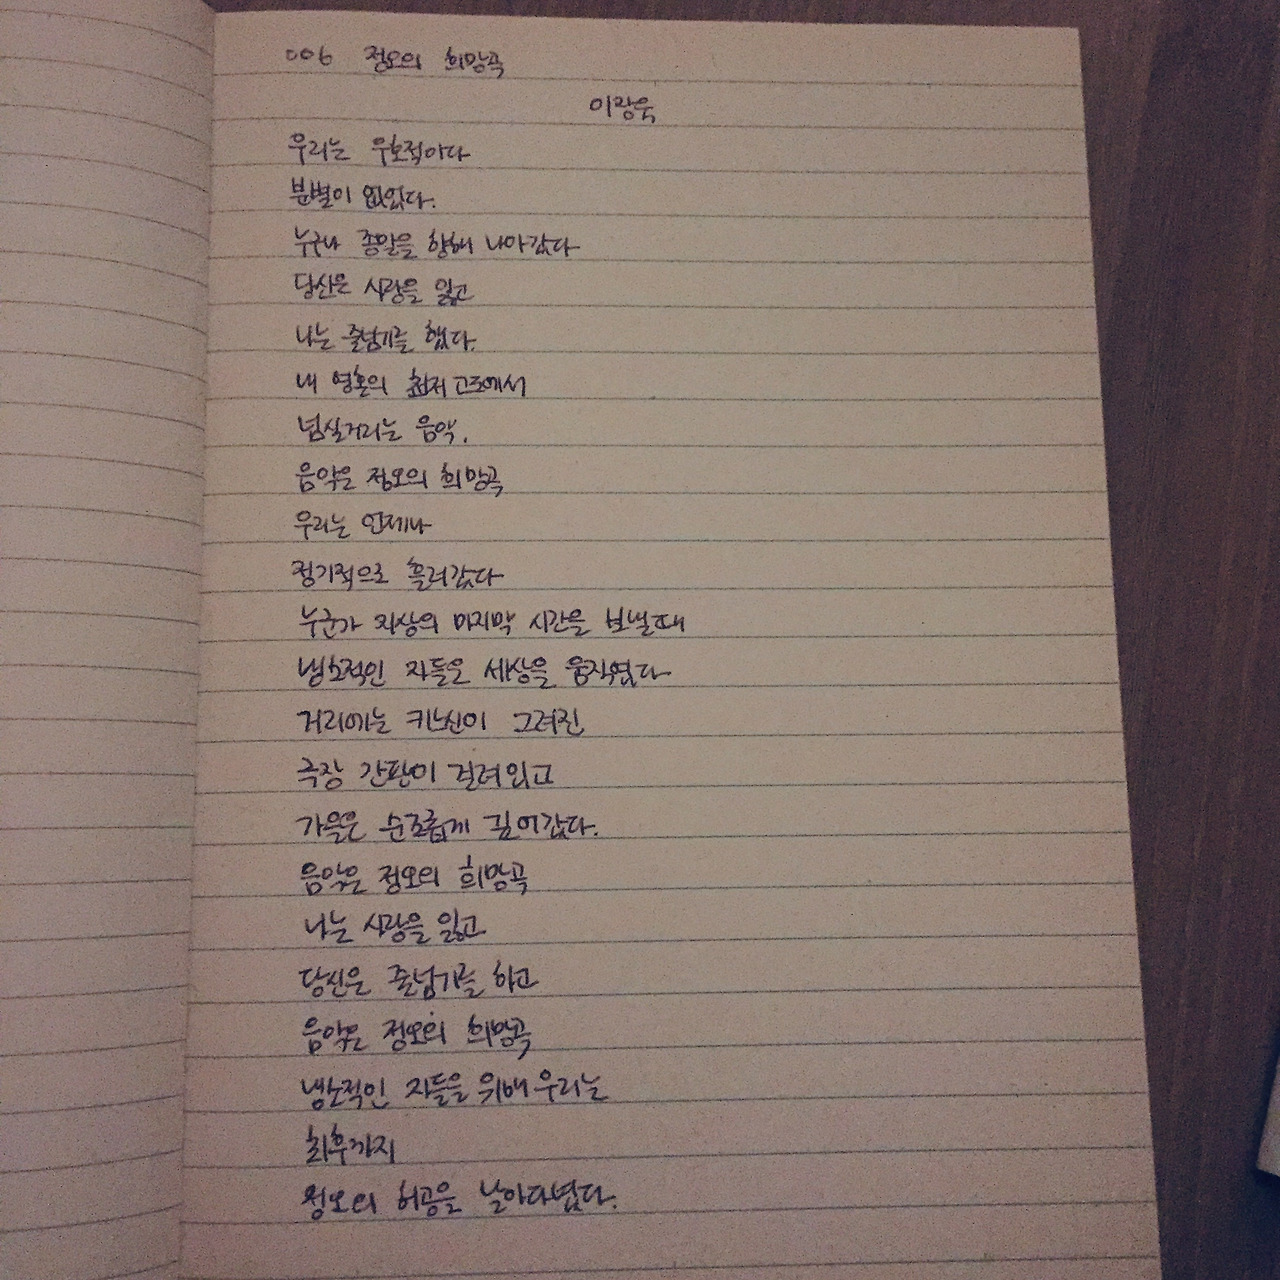 006 정오의 희망곡
이장욱
우리는 우호적이다
분별이 없었다.
누구나 종말을 향해 나아갔다
당신은 사랑을 잃고
나는 줄넘기를 했다.
내 영혼의 최저 고도에서
넘실거리는 음악.
음악은 정오의 희망곡
우리는 언제나
정기적으로 흘러갔다
누군가 지상의 마지막 시간을 보낼때
냉소적인 자들은 세상을 움직였다
거리에는 키스신이 그려진
극장 간판이 걸려있고
가을은 순조롭게 깊어갔다.
음악은 정오의 희망곡
나는 사랑을 잃고
당신은 줄넘기를 하고
음악은 정오의 희망곡
냉소적인 자들을 위해 우리는
최후까지
정오의 허공을 날아다녔다.